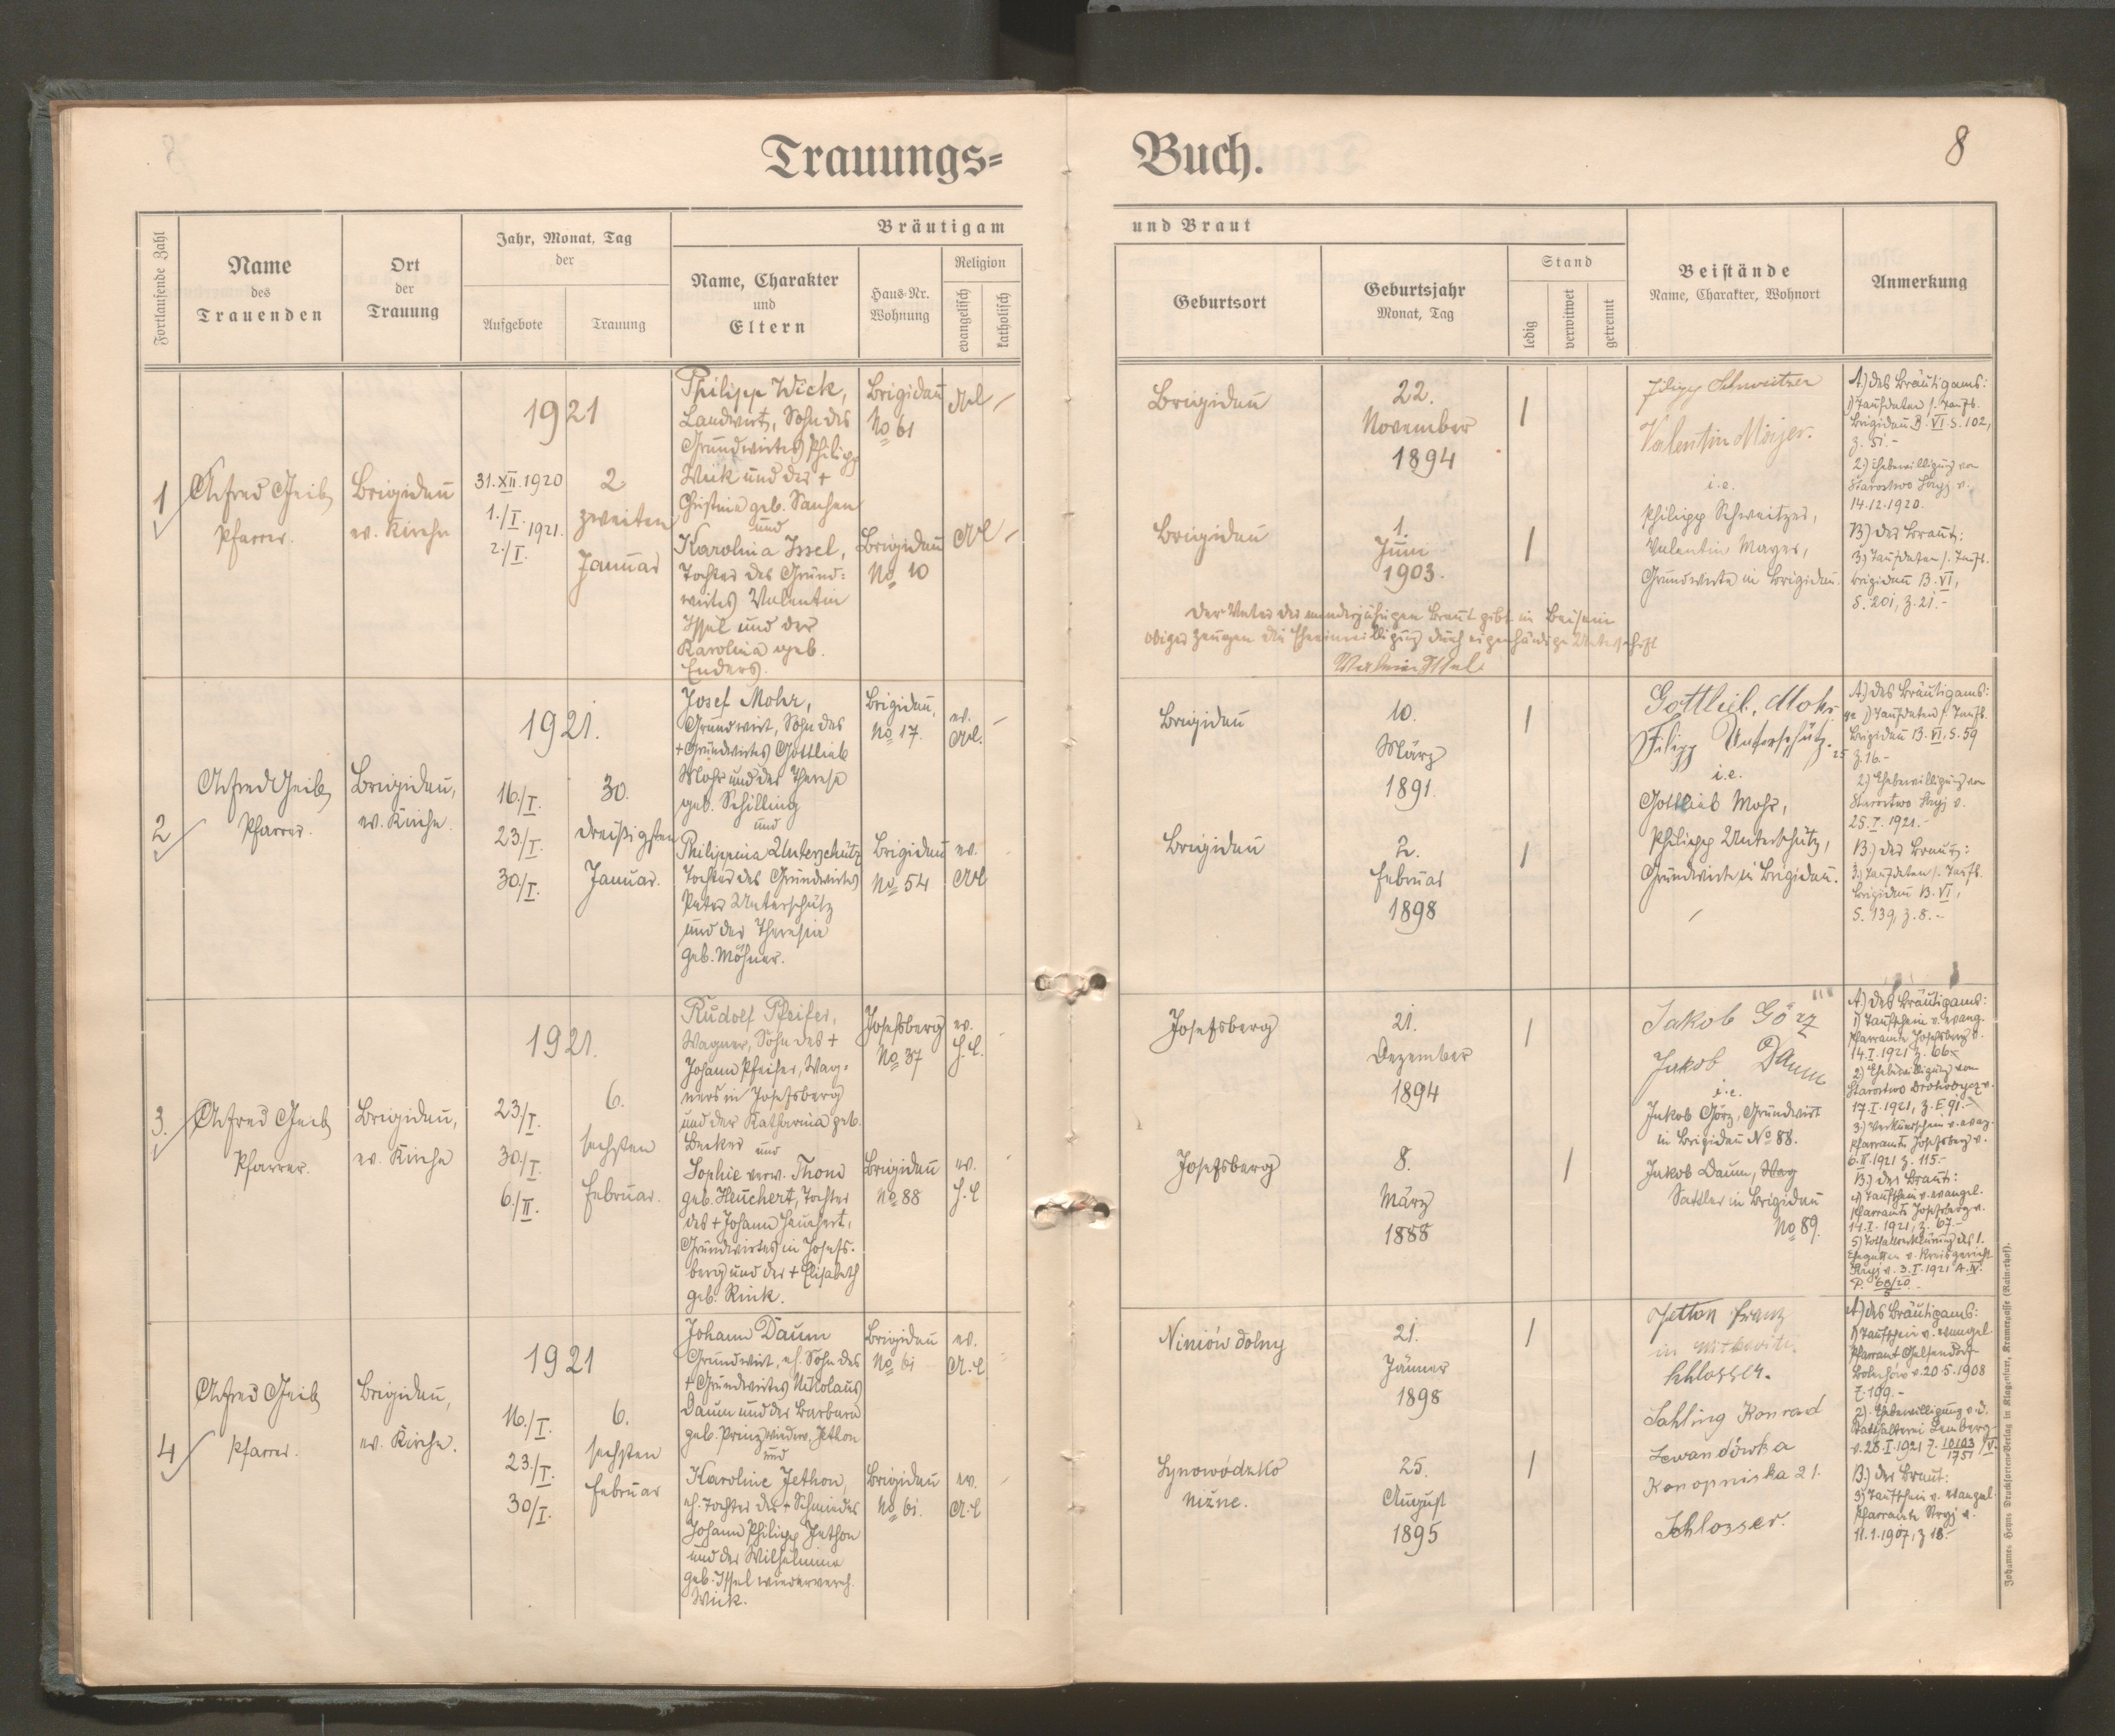 Trauungs=
Buch.
8
Fortlaufende Zahl
Name
des
Trauenden
Ort
der
Trauung
Jahr, Monat, Tag
der
Aufgebote
Trauung
Bräutigam
Name, Charakter
und
Eltern
Haus-Nr.
Wohnung
Religion
evangelisch
katholisch
und Braut
Geburtsort
Geburtsjahr
Monat, Tag
Stand
ledig
verwitwet
getrennt
Beistände
Name, Charakter, Wohnort
Anmerkung
1
Alfred Geib
Pfarrer.
Brigidau
ev. Kirche
1921
31.XII.1920
1./I. 1921.
2./I.
2.
zweiten
Januar
Philipp Wick,
Landwirt, Sohn des
Grundwirtes Philipp
Wick und der +
Christina geb. Sauhen
und
Karolina Issel,
Tochter des Grund=
wirtes Valentin
Issel und der
Karolina geb.
Enders.
Brigidau
No 61
Brigidau
No 10
Brigidau
22.
November
1894
1
Brigidau
1.
Juni
1903.
1
Der Vater der minderjährigen Braut gibt in Beisein
obiger Zeugen die Eheeinwilligung durch eigenhändige Unterschrift
Filipp Schweitzer
Valentin Majer.
i.e.
Philipp Schweitzer,
Valentin Mayer,
Grundwirte in Brigidau.
A.) des Bräutigams:
1) Taufdaten s. Taufb.
Brigidau B. VI. S. 102,
Z. 51.-
2.) Ehebewilligung von
Starostwo Stryj v.
14.12.1920.
B.) der Braut:
3.) Taufdaten s. Taufb.
Brigidau B. VI,
S. 201, Z. 21.-
2
Alfred Geib
Pfarrer.
Brigidau,
ev. Kirche.
1921.
16./I.
23./I.
30/I.
30.
dreißigsten
Januar.
Josef Mohr,
Grundwirt, Sohn des
+ Grundwirtes Gottlieb
Mohr und der Theresa
geb. Schilling
und
Philippina Unterschütz
Tochter des Grundwirtes
Peter Unterschütz
und der Theresia
geb. Möhner.
Brigidau,
No 17.
ev.
Brigidau
No 54
ev.
Brigidau
10.
März
1891.
1
Brigidau
2.
Februar
1898
1
Gottlieb, Mohr
Filipp Unterschütz
i.e.
Gottlieb Mohr,
Philipp Unterschütz,
Grundwirte in Brigidau.
A.) des Bräutigams:
1) Taufdaten s. Taufb.
Brigidau B. VI, S. 59
Z. 16.-
2.) Ehebewilligung von
Starostwo Stryj v.
25.I.1921.-
B.) der Braut:
3.) Taufdaten s. Taufb.
Brigidau B. VI,
S. 139, Z. 8.-
3.
Alfred Geib
Pfarrer.
Brigidau,
ev. Kirche
1921.
23/I.
30./I.
6./II.
6.
sechsten
Februar.
Rudolf Pfeifer,
Wagner, Sohn des +
Johann Pfeifer, Wag=
ners in Josefsberg
und der Katharina geb.
Becker und
Sophie verw. Thom
geb. Heuchert, Tochter
des + Johann Heuchert,
Grundwirtes in Josefs-
berg und der + Elisabeth
geb. Rink.
Josefsberg
No 37
ev.
H.C.
Brigidau
No 88
ev.
H.C
Josefsberg
21.
Dezember
1894
1
Josefsberg
8.
März
1888
1
Jakob Görz
Jakob Daum
i.e.
Jakob Görz, Grundwirt
in Brigidau No 88.
Jakob Daum, Wag
Sattler in Brigidau
No 89.
A.) des Bräutigams:
1) Taufschein v. evang.
Pfarramte Josefsberg v.
14.I.1921 Z. 66
2.) Ehebewilligung vom
Starostwo Drohobycz v.
17.I.1921, Z. E 91.-
3.) Verkündschein v. evang.
Pfarramte Josefsberg v.
6.II.1921 Z. 115.-
B.) der Braut:
4) Taufschein v. evangel.
Pfarramte Josefsberg v.
14.I.1921, Z. 67.-
5) Todeserklärung des 1.
Ehegatten v. Kreisgericht
Stryj v. 3.I.1921 A. IV.
P 68/20
5
4
Alfred Geib
Pfarrer.
Brigidau,
ev. Kirche.
1921
16./I.
23./I.
30/I.
6.
sechsten
Februar
Johann Daum
Grundwirt, eh. Sohn des
+ Grundwirtes Nikolaus
Daum und der Barbara
geb. Prinz wiederv. Jethon
und
Karoline Jethon,
eh. Tochter des + Schmiedes
Johann Philipp Jethon
und der Wilhelmine
geb. Issel wiederverh.
Wick.
Brigidau
No 61
ev.
A.C
Brigidau
No 61.
ev.
A.C
Niniów dolny
21.
Jänner
1898
1
Synowódzko
niżne.
25.
August
1895
1
Jetton Franz
Schlosser.
Sahling Konrad
Lewandówka
Konopniska 21.
Schlosser.
A.) des Bräutigams:
1) Taufschein v. evangel.
Pfarramt Gelsendorf
Bolechów v. 20.5.1908
Z. 199.-
2.) Ehebewilligung v. d.
Statthalterei Lemberg
v. 28.I.1921 Z. 10103/1751/V.
B.) der Braut:
3) Taufschein v. evangel.
Pfarramte Stryj v.
11.1.1907, Z 18.-
Johannes Heyns Drucksorten-Verlag in Klagenfurt, Kramergasse (Rainerhof).